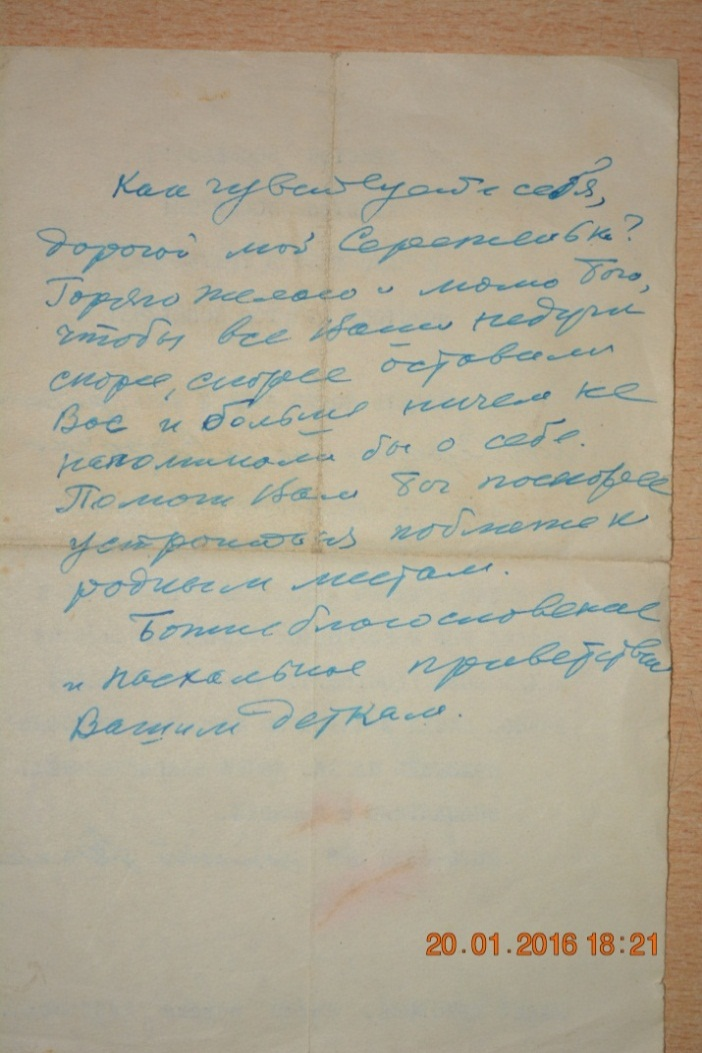 Как чувствуете себя,
дорогой мой Сереженька?
Горячо желаю и молю Бога,
чтобы все Ваши недуги
скорее, скорее оставили
Вас и больше ничем не
напоминали бы о себе.
Помоги Вам Бог поскорее
устроиться поближе к
родным местам.
Божие благословение
и пасхальное приветствие
Вашим деткам.
20.01.2016 18:21